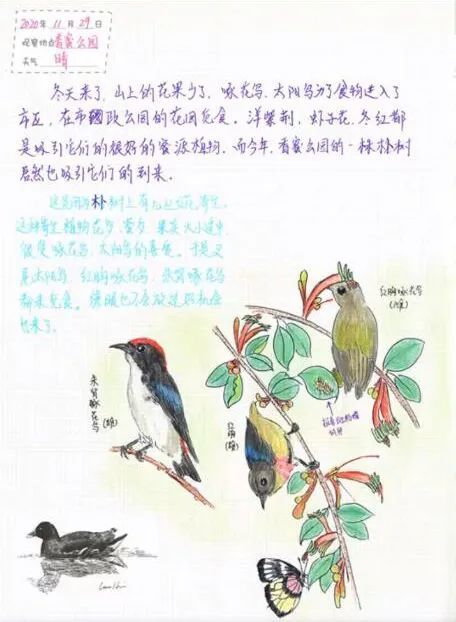 2020年11月29日
观察地点 香蜜公园
天气 晴
冬天来了,山上的花果少了,啄花鸟、太阳鸟为了食物进入了
市区,在市政公园的花园觅食。洋紫荆、虾子花、冬红都
是吸引它们的很好的蜜源植物,而今年,香蜜公园的一株朴树
居然也吸引它们的到来。
朴树上有
寄生植物花多、蜜多、果实大小适中
很受啄花鸟、太阳鸟的喜爱。于是叉
尾太阳鸟、红胸啄花鸟、朱背啄花鸟
都来觅食。
也来了。
朱背啄花鸟
(雄)
红胸啄花鸟
(雌)
红胸
(雄)